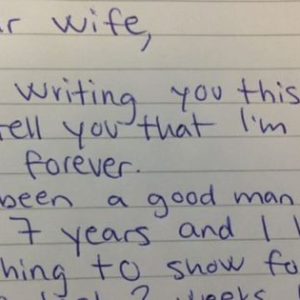 wife,
writing you this
tell you that I'm
forever.
been a good man
7 years and I
to show